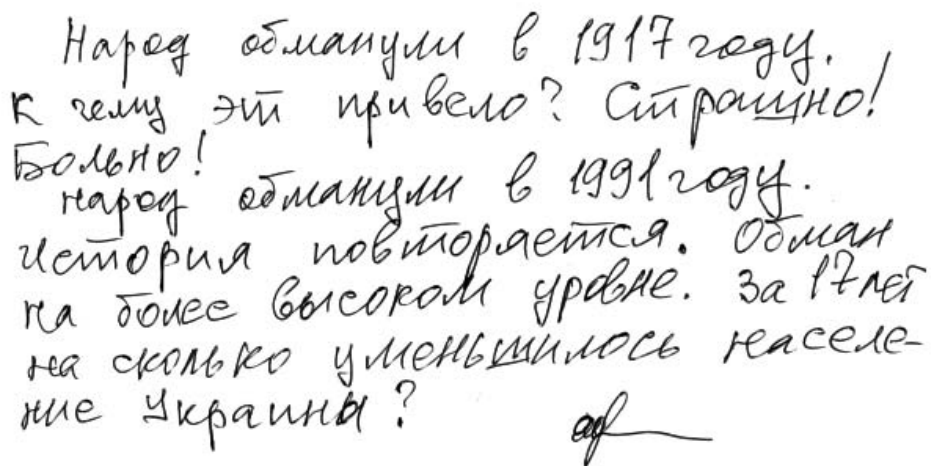 Народ обманули в 1917 году.
К чему эт привело? Страшно!
Больно!
Народ обманули в 1991 году.
История повторяется. Обман
на более высоком уровне. За 17 лет
на сколько уменьшилось населе-
ние Украины?